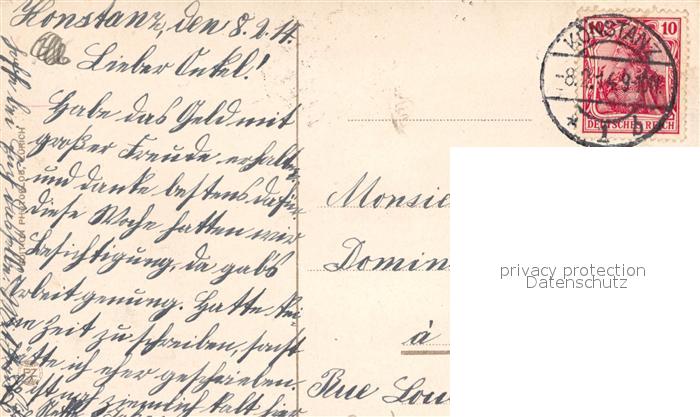 Konstanz, den 8.2.14.
Lieber Onkel!
Habe das Geld mit
großer Freude erhalten
und danke bestens dafür
diese Woche hatten wir
Besichtigung, da gabs
Arbeit genung. Hatte kei-
ne Zeit zu schreiben, sonst
hätte ich eher geschrieben.
ist noch ziemlich kalt hier
10 10
DEUTSCHES REICH
KONSTANZ
-8.2.14.9-10V
* 1 b
Monsie
Domin
à
Rue Lou
privacy protection
Datenschutz